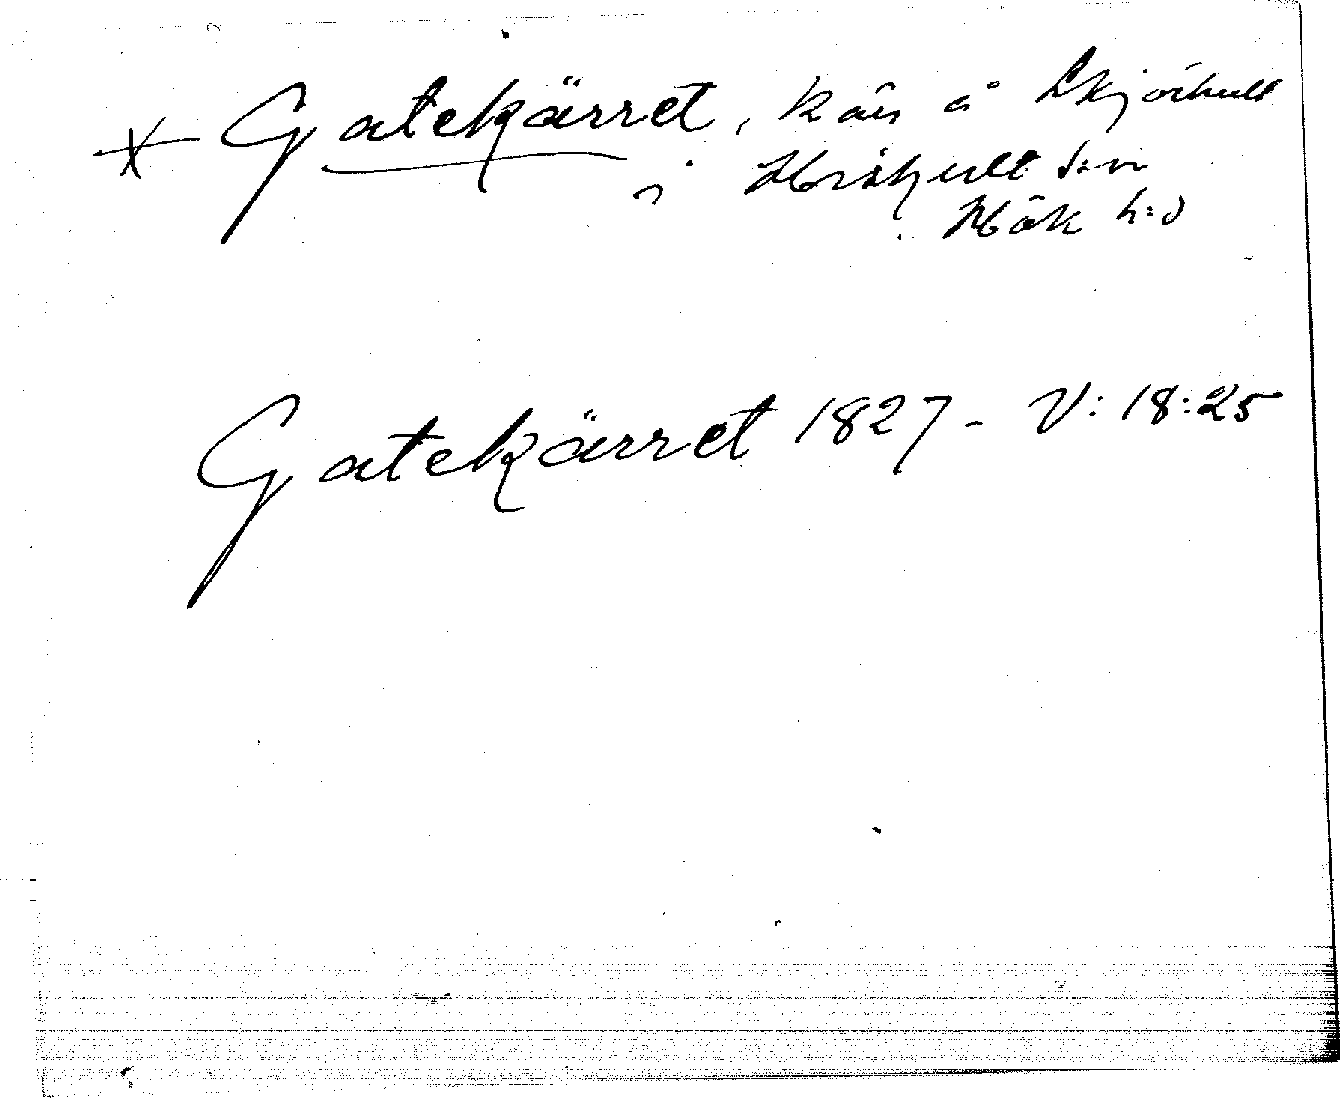 Gatekärret, kärr å Skjörhult
i Hishult s:n
Hök h:d
Gatekärret 1827 - V: 18:25